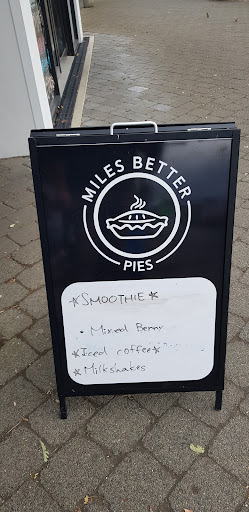 MILES BETTER
PIES
*SMOOTHIE*
• Mixed Berry
*Iced coffee*
*Milkshakes